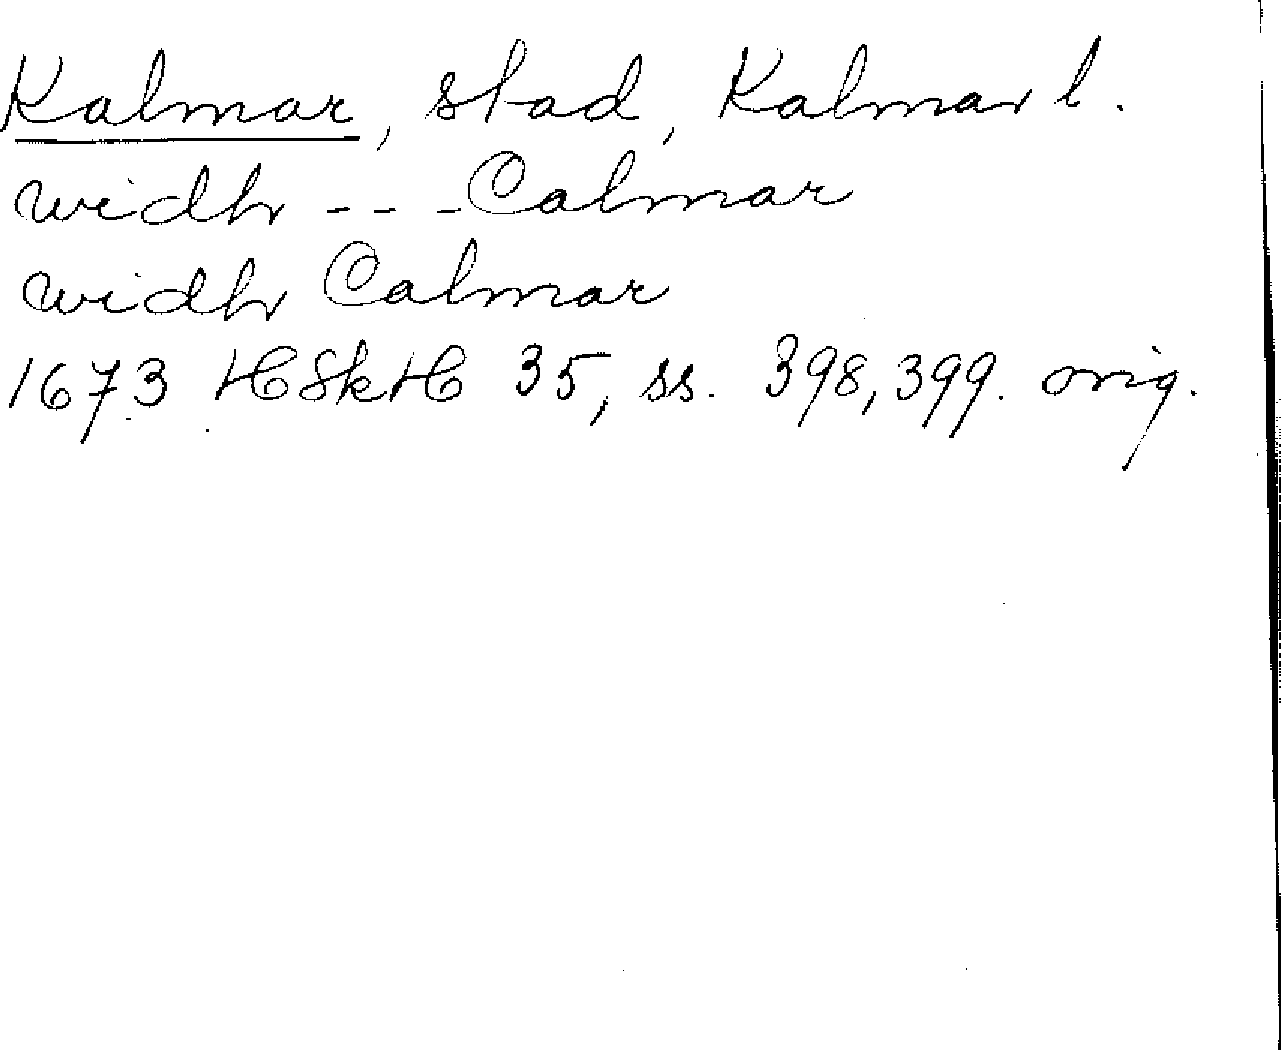 Kalmar, stad, Kalmar l.
widh - - - Calmar
widh Calmar
1673 HSkH 35, ss. 398, 399. orig.